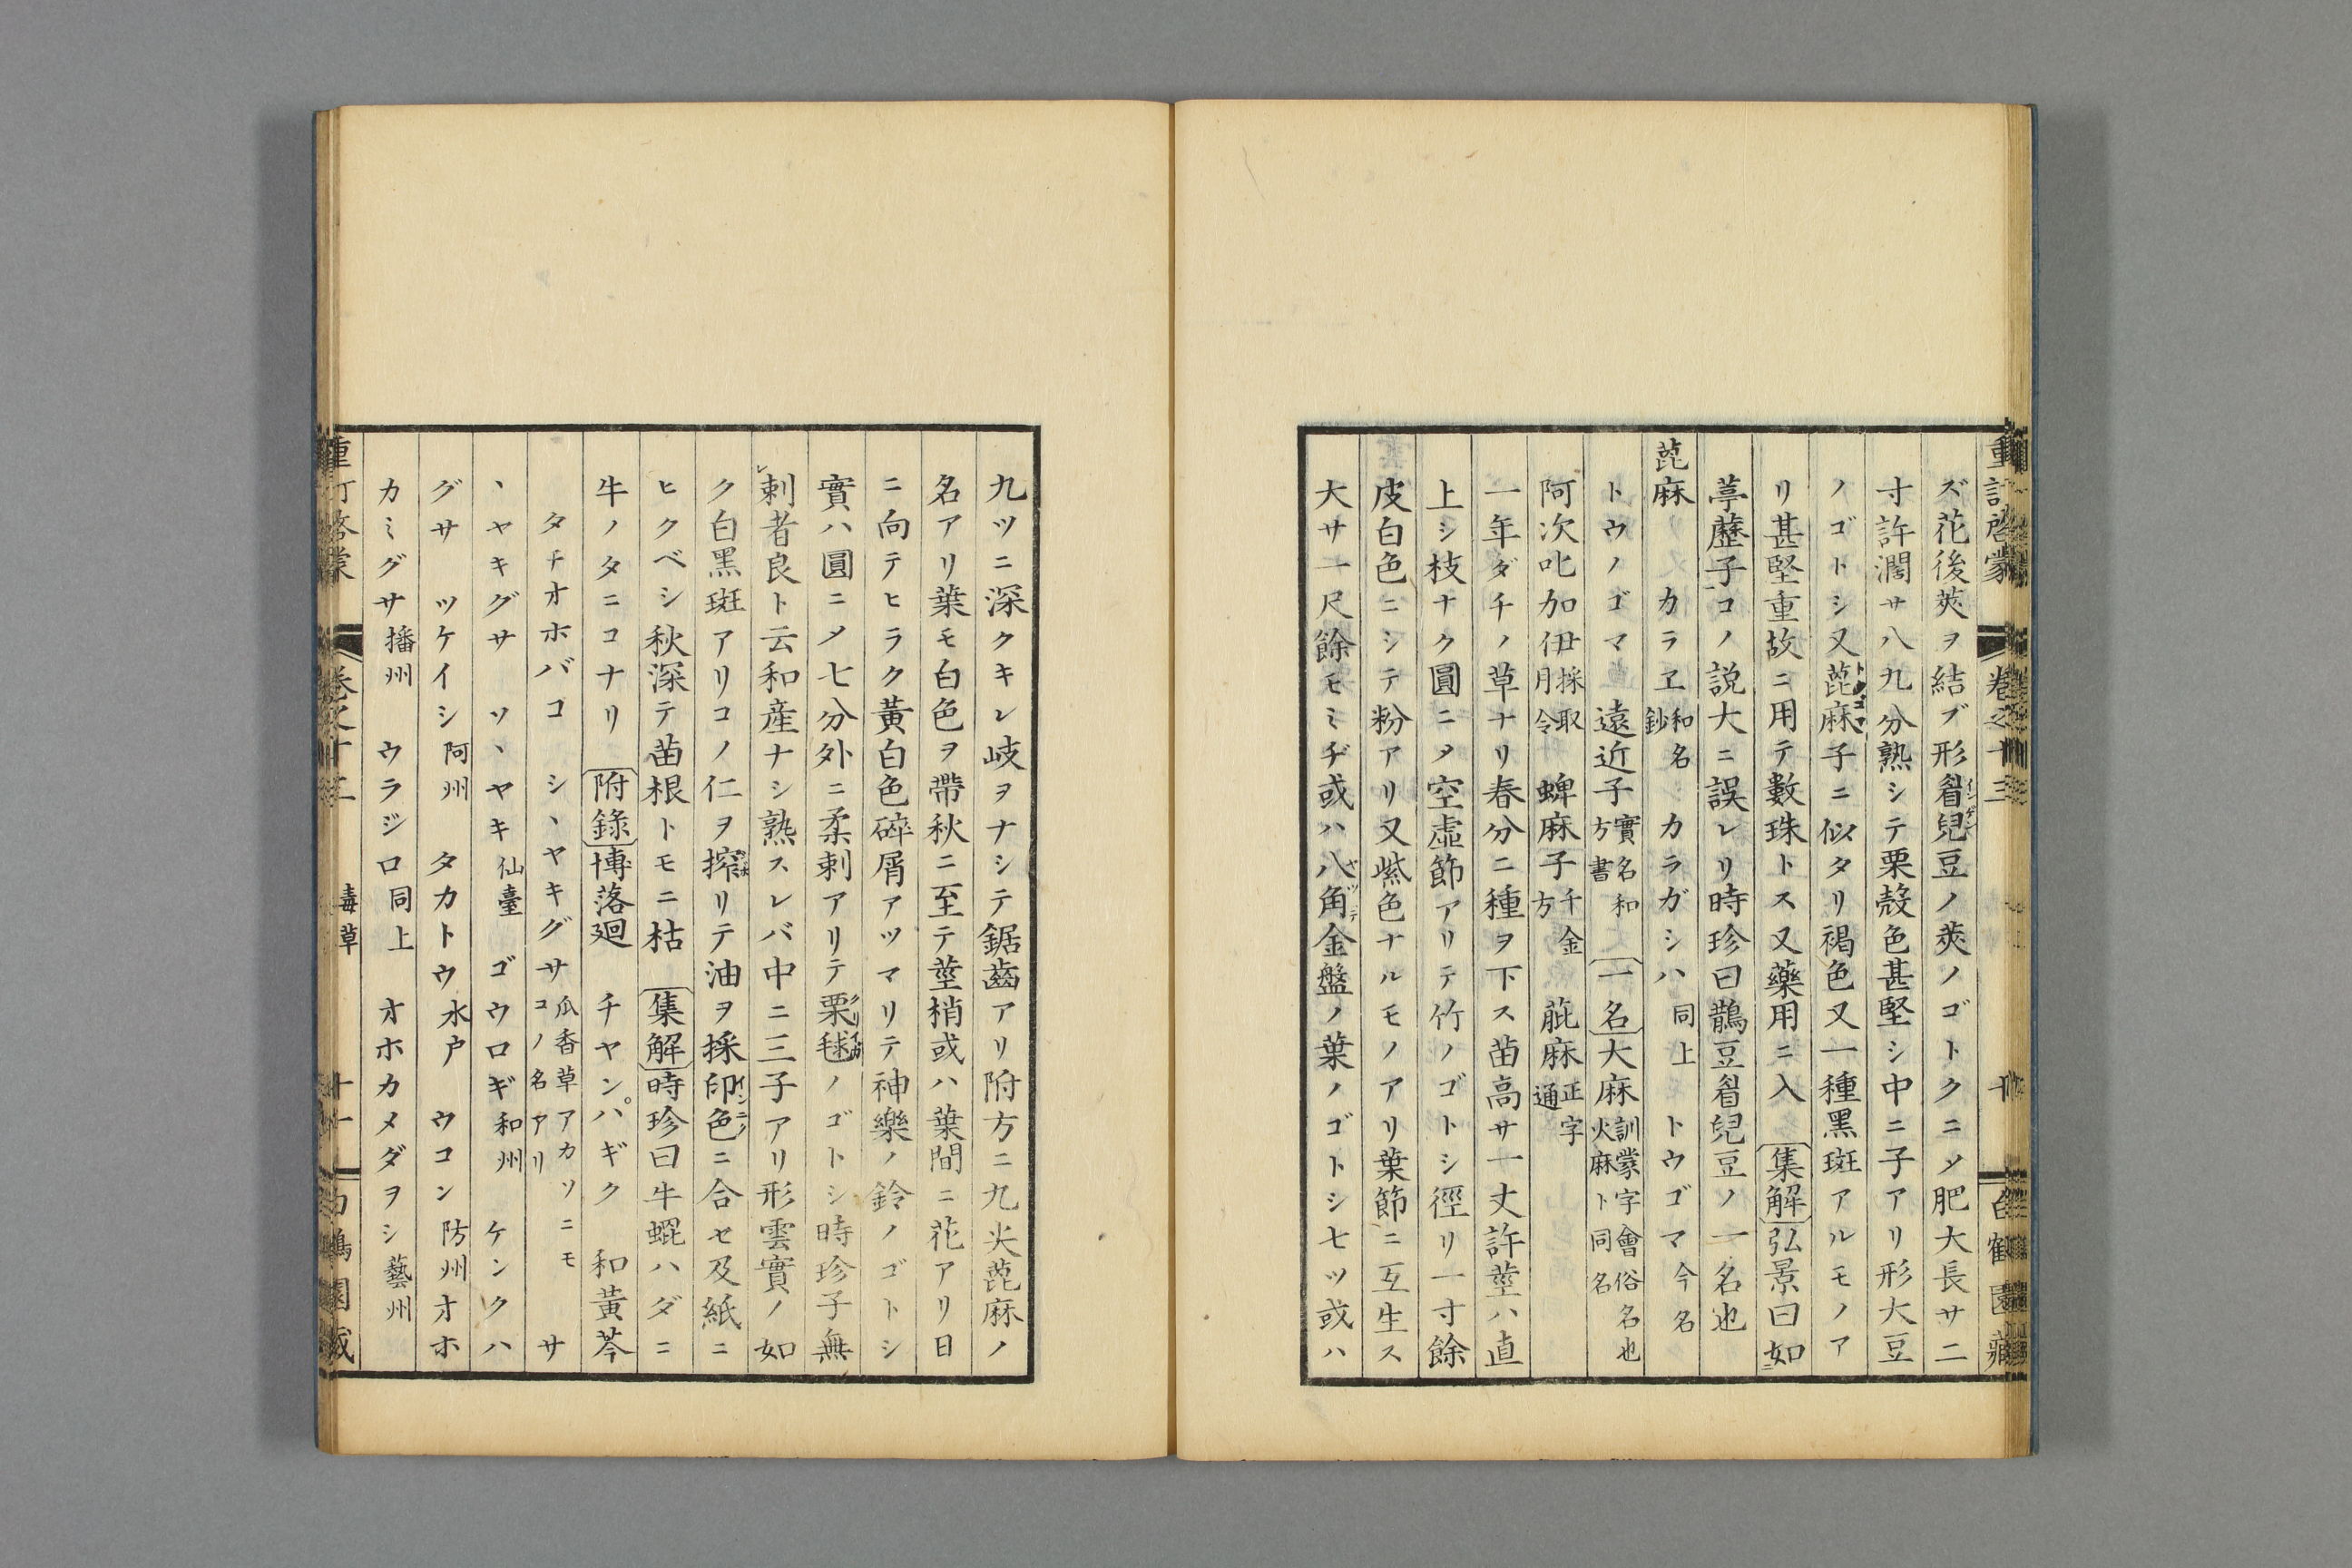 ズ花後莢ヲ結ブ形眉兒豆ノ莢ノゴトクニメ肥大長サ二
寸許濶サ八九分熟シテ栗殻色甚堅シ中ニ子アリ形大豆
ノゴトシ又蓖麻子ニ似タリ褐色又一種黒斑アルモノア
リ甚堅重故ニ用テ數珠トス又藥用ニ入 集解弘景曰如
葶藶子コノ説大ニ誤レリ時珍曰鵲豆眉兒豆ノ一名也
蓖麻 カラヱ和名鈔 カラガシハ同上 トウゴマ今名
トウノゴマ 遠近子實名和方書 一名大麻訓蒙字會俗名也火麻ト同名
阿次叱加伊採取月令 蜱麻子千金方 萞麻正字通
一年ダチノ草ナリ春分ニ種ヲ下ス苗高サ一丈許莖ハ直
上シ枝ナク圓ニメ空虚節アリテ竹ノゴトシ徑リ一寸餘
皮白色ニシテ粉アリ又紫色ナルモノアリ葉節ニ互生ス
大サ一尺餘モミヂ或ハ八角金盤ノ葉ノゴトシ七ツ或ハ
九ツニ深クキレ岐ヲナシテ鋸齒アリ附方ニ九尖蓖麻ノ
名アリ葉モ白色ヲ帶秋ニ至テ莖梢或ハ葉間ニ花アリ日
ニ向テヒラク黃白色碎屑アツマリテ神樂ノ鈴ノゴトシ
實ハ圓ニメ七分外ニ柔刺アリテ栗毬ノゴトシ時珍子無
刺者良ト云和産ナシ熟スレバ中ニ三子アリ形雲實ノ如
ク白黑斑アリコノ仁ヲ搾リテ油ヲ採印色ニ合セ及紙ニ
ヒクベシ秋深テ苗根トモニ枯 集解時珍曰牛蜫ハダニ
牛ノタニコナリ 附錄博落廻 チヤンパギク 和黃芩
タチオホバコ シヽヤキグサ瓜香草アカソニモコノ名アリ サ
ヽヤキグサ ソヽヤキ仙臺 ゴウロギ和州 ケンクハ
グサ ツケイシ阿州 タカトウ水戸 ウコン防州 オホ
カミグサ播州 ウラジロ同上 オホカメダヲシ藝州